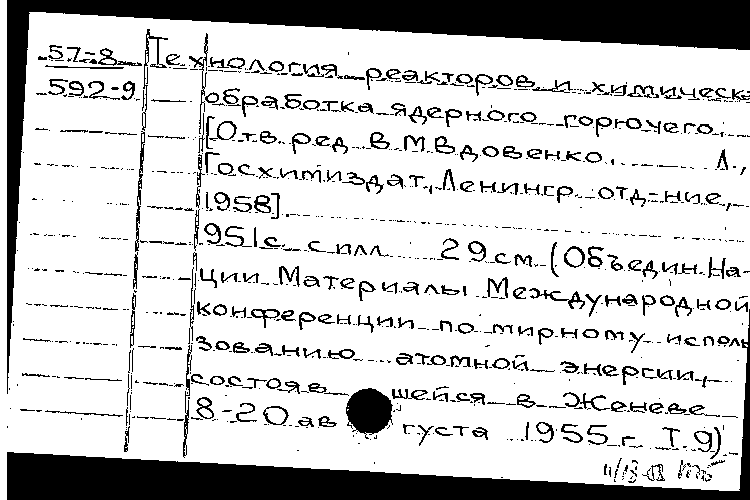 57-8 Технология реакторов и химическ
592-9 обработка ядерного горючего.
[Отв. ред. В. М. Вдовенко. Л.,
Госхимиздат, Ленингр. отд-ние,
1958].
951 с. с илл. 29 см. (Объедин. На-
ции. Материалы Международной
конференции по мирному исполь
зованию атомной энергии,
состояв шейся в Женеве
8-20 ав густа 1955 г. Т. 9)